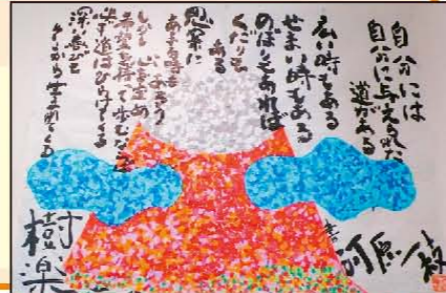 自分には
自分に与えられた
道がある
広い時もある
せまい時もある
のぼりもあれば
くだりも
ある
思案に
あまる時も
あろう
しかし心定め
希望を持て歩むなら
必ず道はひらけてくる
深い喜びも
そこから生まれてくる
樹楽